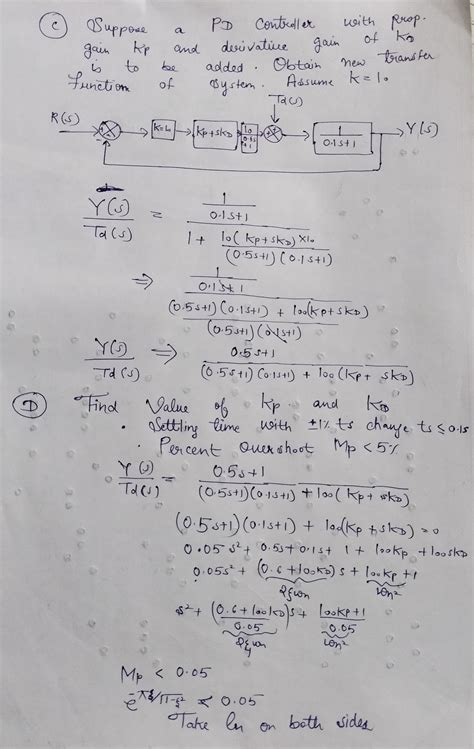 C Suppose a PD controller with prop.
gain Kp and derivative gain of KD
is to be added. Obtain new transfer
Function of System. Assume K=10
Td(s)
R(s) K=10 Kp+sKD 10 1 Y(s)
0.1s+1
Y(s) = 1
0.1s+1
Td(s) 1 + 10(Kp+sKD)×10
(0.5s+1)(0.1s+1)
⇒ 1
0.1s+1
(0.5s+1)(0.1s+1) + 100(Kp+sKD)
(0.5s+1)(0.1s+1)
Y(s) ⇒ 0.5s+1
Td(s) (0.5s+1)(0.1s+1) + 100(Kp+sKD)
D Find Value of Kp and KD
• Settling time with ±1% ts change ts ≤ 0.1s
• Percent Overshoot Mp < 5%
Y(s) = 0.5s+1
Td(s) (0.5s+1)(0.1s+1) + 100(Kp+sKD)
(0.5s+1)(0.1s+1) + 100(Kp+sKD) = 0
0.05s² + 0.5s+0.1s+ 1 + 100Kp + 100sKD
0.05s² + (0.6+100KD)s + 100Kp+1
2ξωn ωn²
s² + (0.6+100KD)s + 100Kp+1
0.05 0.05
2ξωn ωn²
Mp < 0.05
e^-πξ/√1-ξ² < 0.05
Take ln on both sides